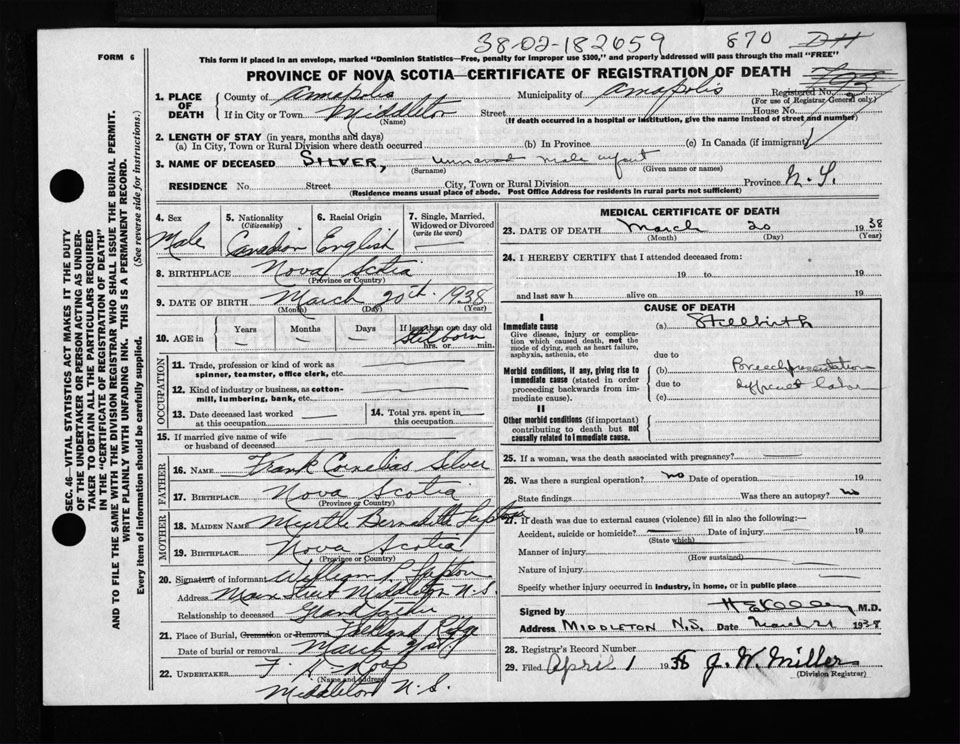 38-02-182659 870
FORM 6
This form if placed in an envelope, marked "Dominion Statistics—Free, penalty for improper use $300," and properly addressed will pass through the mail "FREE"
PROVINCE OF NOVA SCOTIA—CERTIFICATE OF REGISTRATION OF DEATH
1. PLACE OF DEATH
County of Annapolis Municipality of Annapolis Registered No.
(For use of Registrar General only)
If in City or Town Middleton Street House No.
(Name) (If death occurred in a hospital or institution, give the name instead of street and number)
2. LENGTH OF STAY (in years, months and days)
(a) In City, Town or Rural Division where death occurred (b) In Province (c) In Canada (if immigrant)
3. NAME OF DECEASED SILVER, — unnamed male infant
(Surname) (Given name or names)
RESIDENCE No. Street City, Town or Rural Division Province N.S.
(Residence means usual place of abode. Post Office Address for residents in rural parts not sufficient)
SEC. 46—VITAL STATISTICS ACT MAKES IT THE DUTY
OF THE UNDERTAKER OR PERSON ACTING AS UNDER-
TAKER TO OBTAIN ALL THE PARTICULARS REQUIRED
IN THE "CERTIFICATE OF REGISTRATION OF DEATH"
AND TO FILE THE SAME WITH THE DIVISION REGISTRAR WHO SHALL ISSUE THE BURIAL PERMIT.
WRITE PLAINLY WITH UNFADING INK. THIS IS A PERMANENT RECORD.
Every item of information should be carefully supplied. (See reverse side for instructions.)
4. Sex Male
5. Nationality (Citizenship) Canadian
6. Racial Origin English
7. Single, Married, Widowed or Divorced (write the word)
8. BIRTHPLACE Nova Scotia
(Province or Country)
9. DATE OF BIRTH March 20th 1938
(Month) (Day) (Year)
10. AGE in Years — Months — Days — If less than one day old Stillborn hrs. or min.
OCCUPATION
11. Trade, profession or kind of work as
spinner, teamster, office clerk, etc. —
12. Kind of industry or business, as cotton-
mill, lumbering, bank, etc. —
13. Date deceased last worked at this occupation —
14. Total yrs. spent in this occupation —
15. If married give name of wife
or husband of deceased —
FATHER
16. NAME Frank Cornelias Silver
17. BIRTHPLACE Nova Scotia
(Province or Country)
MOTHER
18. MAIDEN NAME Myrtle Bernadith
19. BIRTHPLACE Nova Scotia
(Province or Country)
20. Signature of informant William L.
Address Main Street Middleton N.S.
Relationship to deceased Grandfather
21. Place of Burial, Cremation or Removal Falkland Ridge
Date of burial or removal March 21st
22. UNDERTAKER F.
(Name and address)
Middleton N.S.
MEDICAL CERTIFICATE OF DEATH
23. DATE OF DEATH March 20 1938
(Month) (Day) (Year)
24. I HEREBY CERTIFY that I attended deceased from:
19 to 19
and last saw h alive on 19
CAUSE OF DEATH
I
Immediate cause
Give disease, injury or complica-
tion which caused death, not the
mode of dying, such as heart failure,
asphyxia, asthenia, etc
(a) Stillbirth
due to
Morbid conditions, if any, giving rise to
immediate cause (stated in order
proceeding backwards from im-
mediate cause).
(b) Breech presentation
due to difficult labor
(c)
II
Other morbid conditions (if important)
contributing to death but not
causally related to immediate cause.
25. If a woman, was the death associated with pregnancy? —
26. Was there a surgical operation? no Date of operation 19
State findings Was there an autopsy? no
27. If death was due to external causes (violence) fill in also the following:—
Accident, suicide or homicide? Date of injury 19
(State which)
Manner of injury
(How sustained)
Nature of injury
Specify whether injury occurred in industry, in home, or in public place
Signed by M.D.
Address MIDDLETON N.S. Date March 21 1938
28. Registrar's Record Number
29. Filed April 1 1938 J. W. Miller
(Division Registrar)